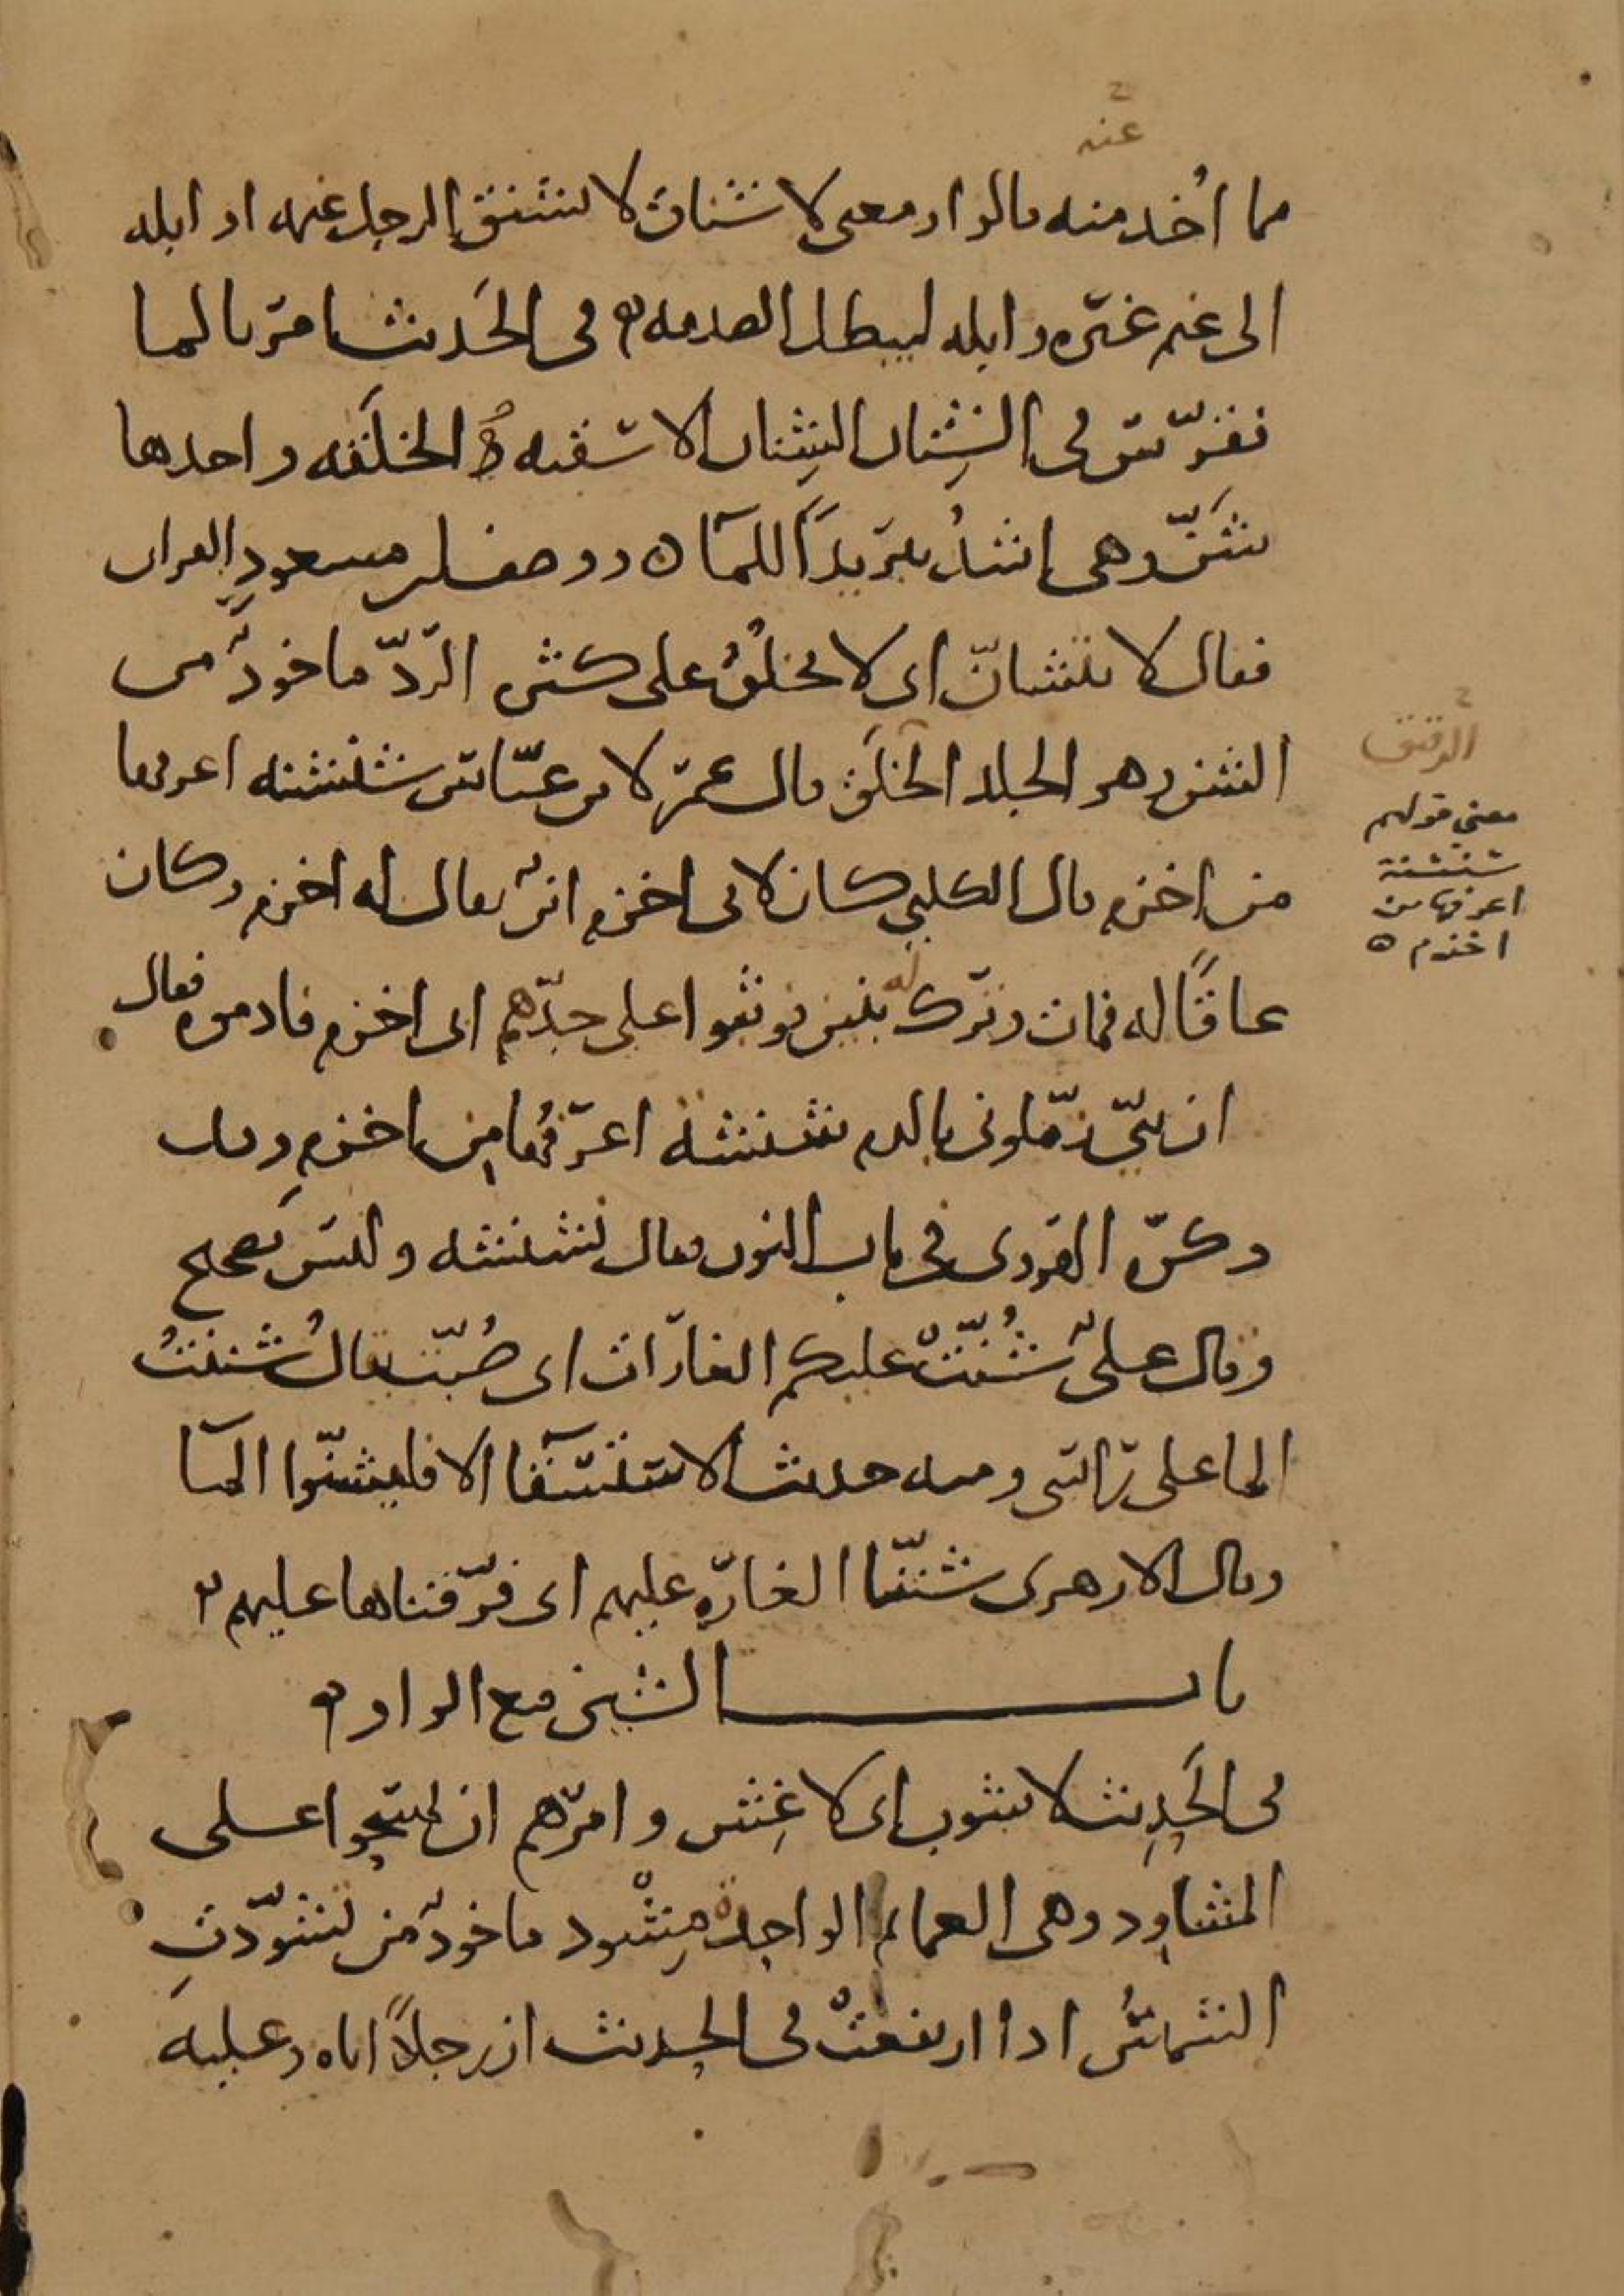 عنه
مما اُخد منه قالوا ومعنى لا شناق لا يشنق الرجل غنمه او ابله
الى غنم غيره وابله ليبطل الصدقه في الحديث امر بالما
فقرس في الشنان الشنان الاسقيه الخلقه واحدها
شن وهي اشد تبريدا للما ووصف ابن مسعود القران
فقال لا يتشان اى لا يخلق على كثره الرد ماخوذ من
الشن وهو الجلد الخلق قال عمر لابن عباس شنشنه اعرفها
من اخزم قال الكلبي كان لابى اخزم ابن يقال له اخزم وكان
عاقا له فمات وترك بنين فوثبوا على جدهم ابى اخزم فادموه فقال
ان بني زملوني بالدم شنشنه اعرفها من اخزم
وذكره الهروى في باب النون فقال نشنشه وليس بصحيح
وقال على شُنّت عليكم الغارات اى صُبّت يقال شننتُ
الما على راسى ومنه حديث الاستسقا الا فليشنوا الما
وقال الازهرى شننا الغاره عليهم اى فرقناها عليهم
باب الشين مع الواو
في الحديث لا شوب اى لا غش وامرهم ان يمسحوا على
المشاوذ وهى العمايم الواحد مشوذ ماخوذ من تشوذت
الشمس اذا ارتفعت في الحديث ان رجلا اتاه وعليه
الرقيق
معنى قولهم
شنشنة
اعرفها من
اخزم